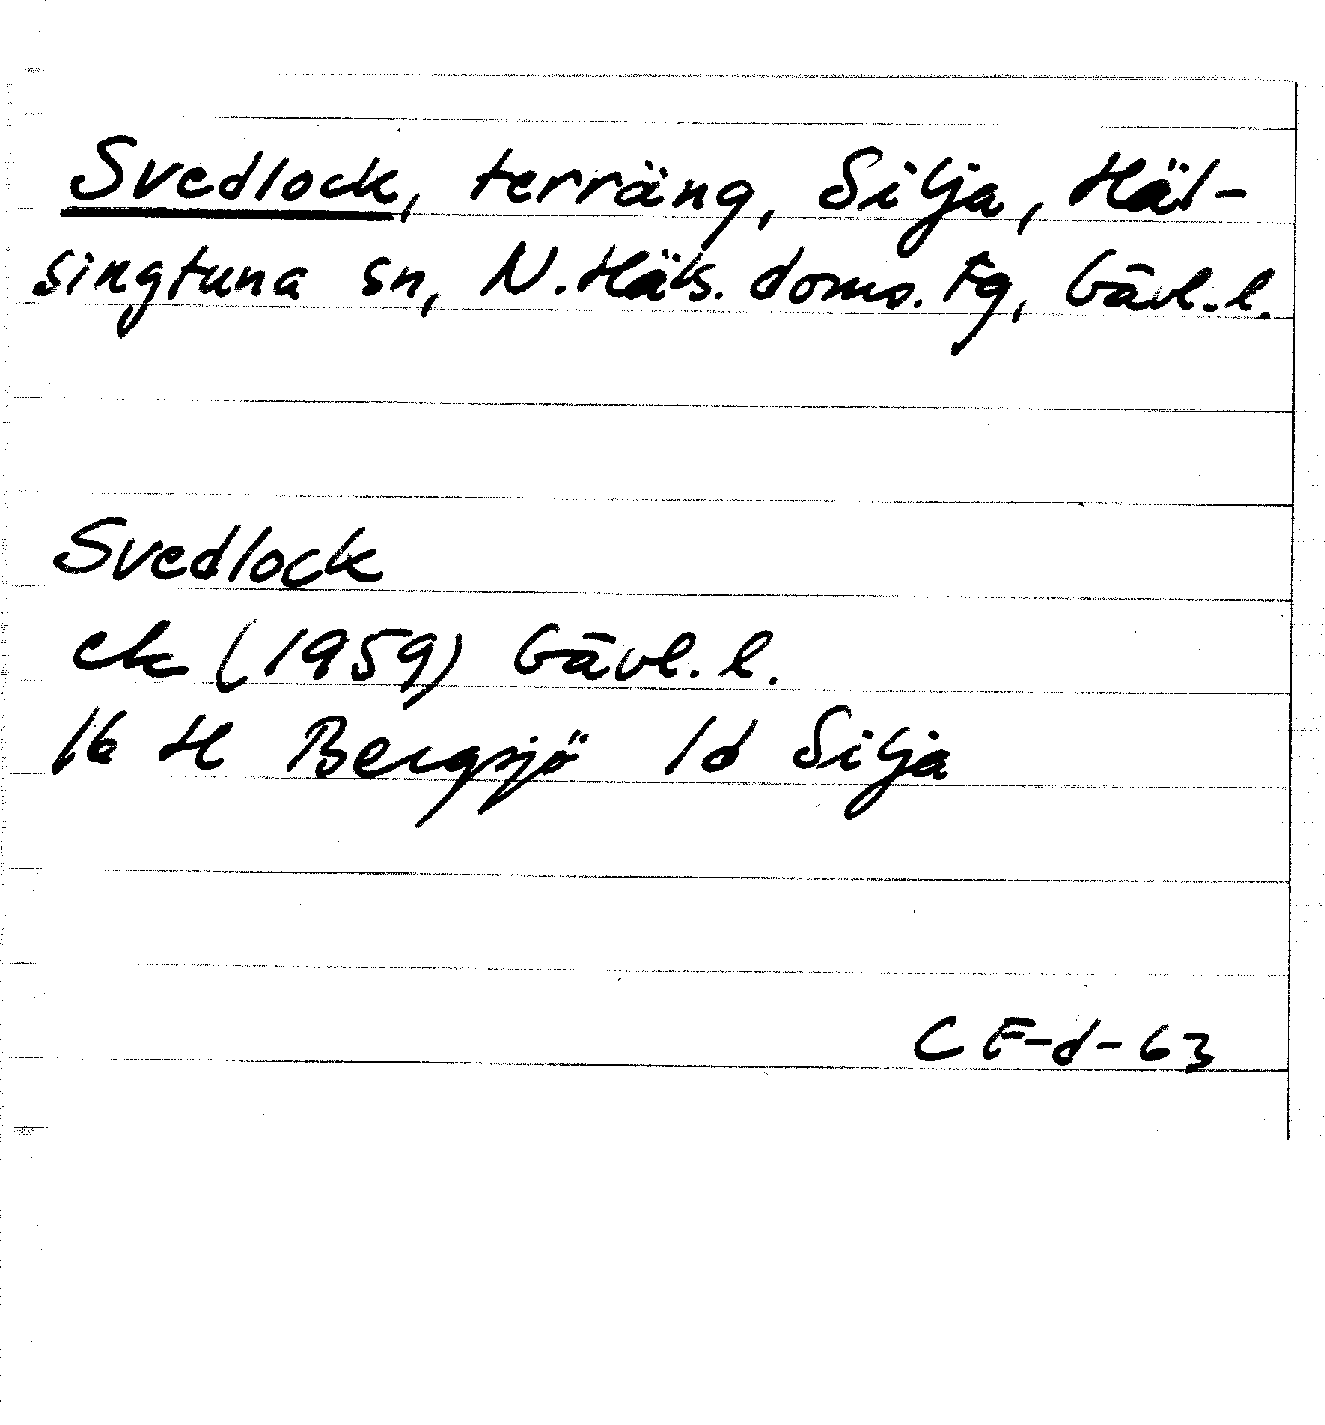 Svedlock, terräng, Silja, Häl-
singtuna sn, N. Häls. doms. Fg, Gävl. l.
Svedlock
ek (1959) Gävl. l.
16 H Bergsjö 1d Silja
CE-d-63